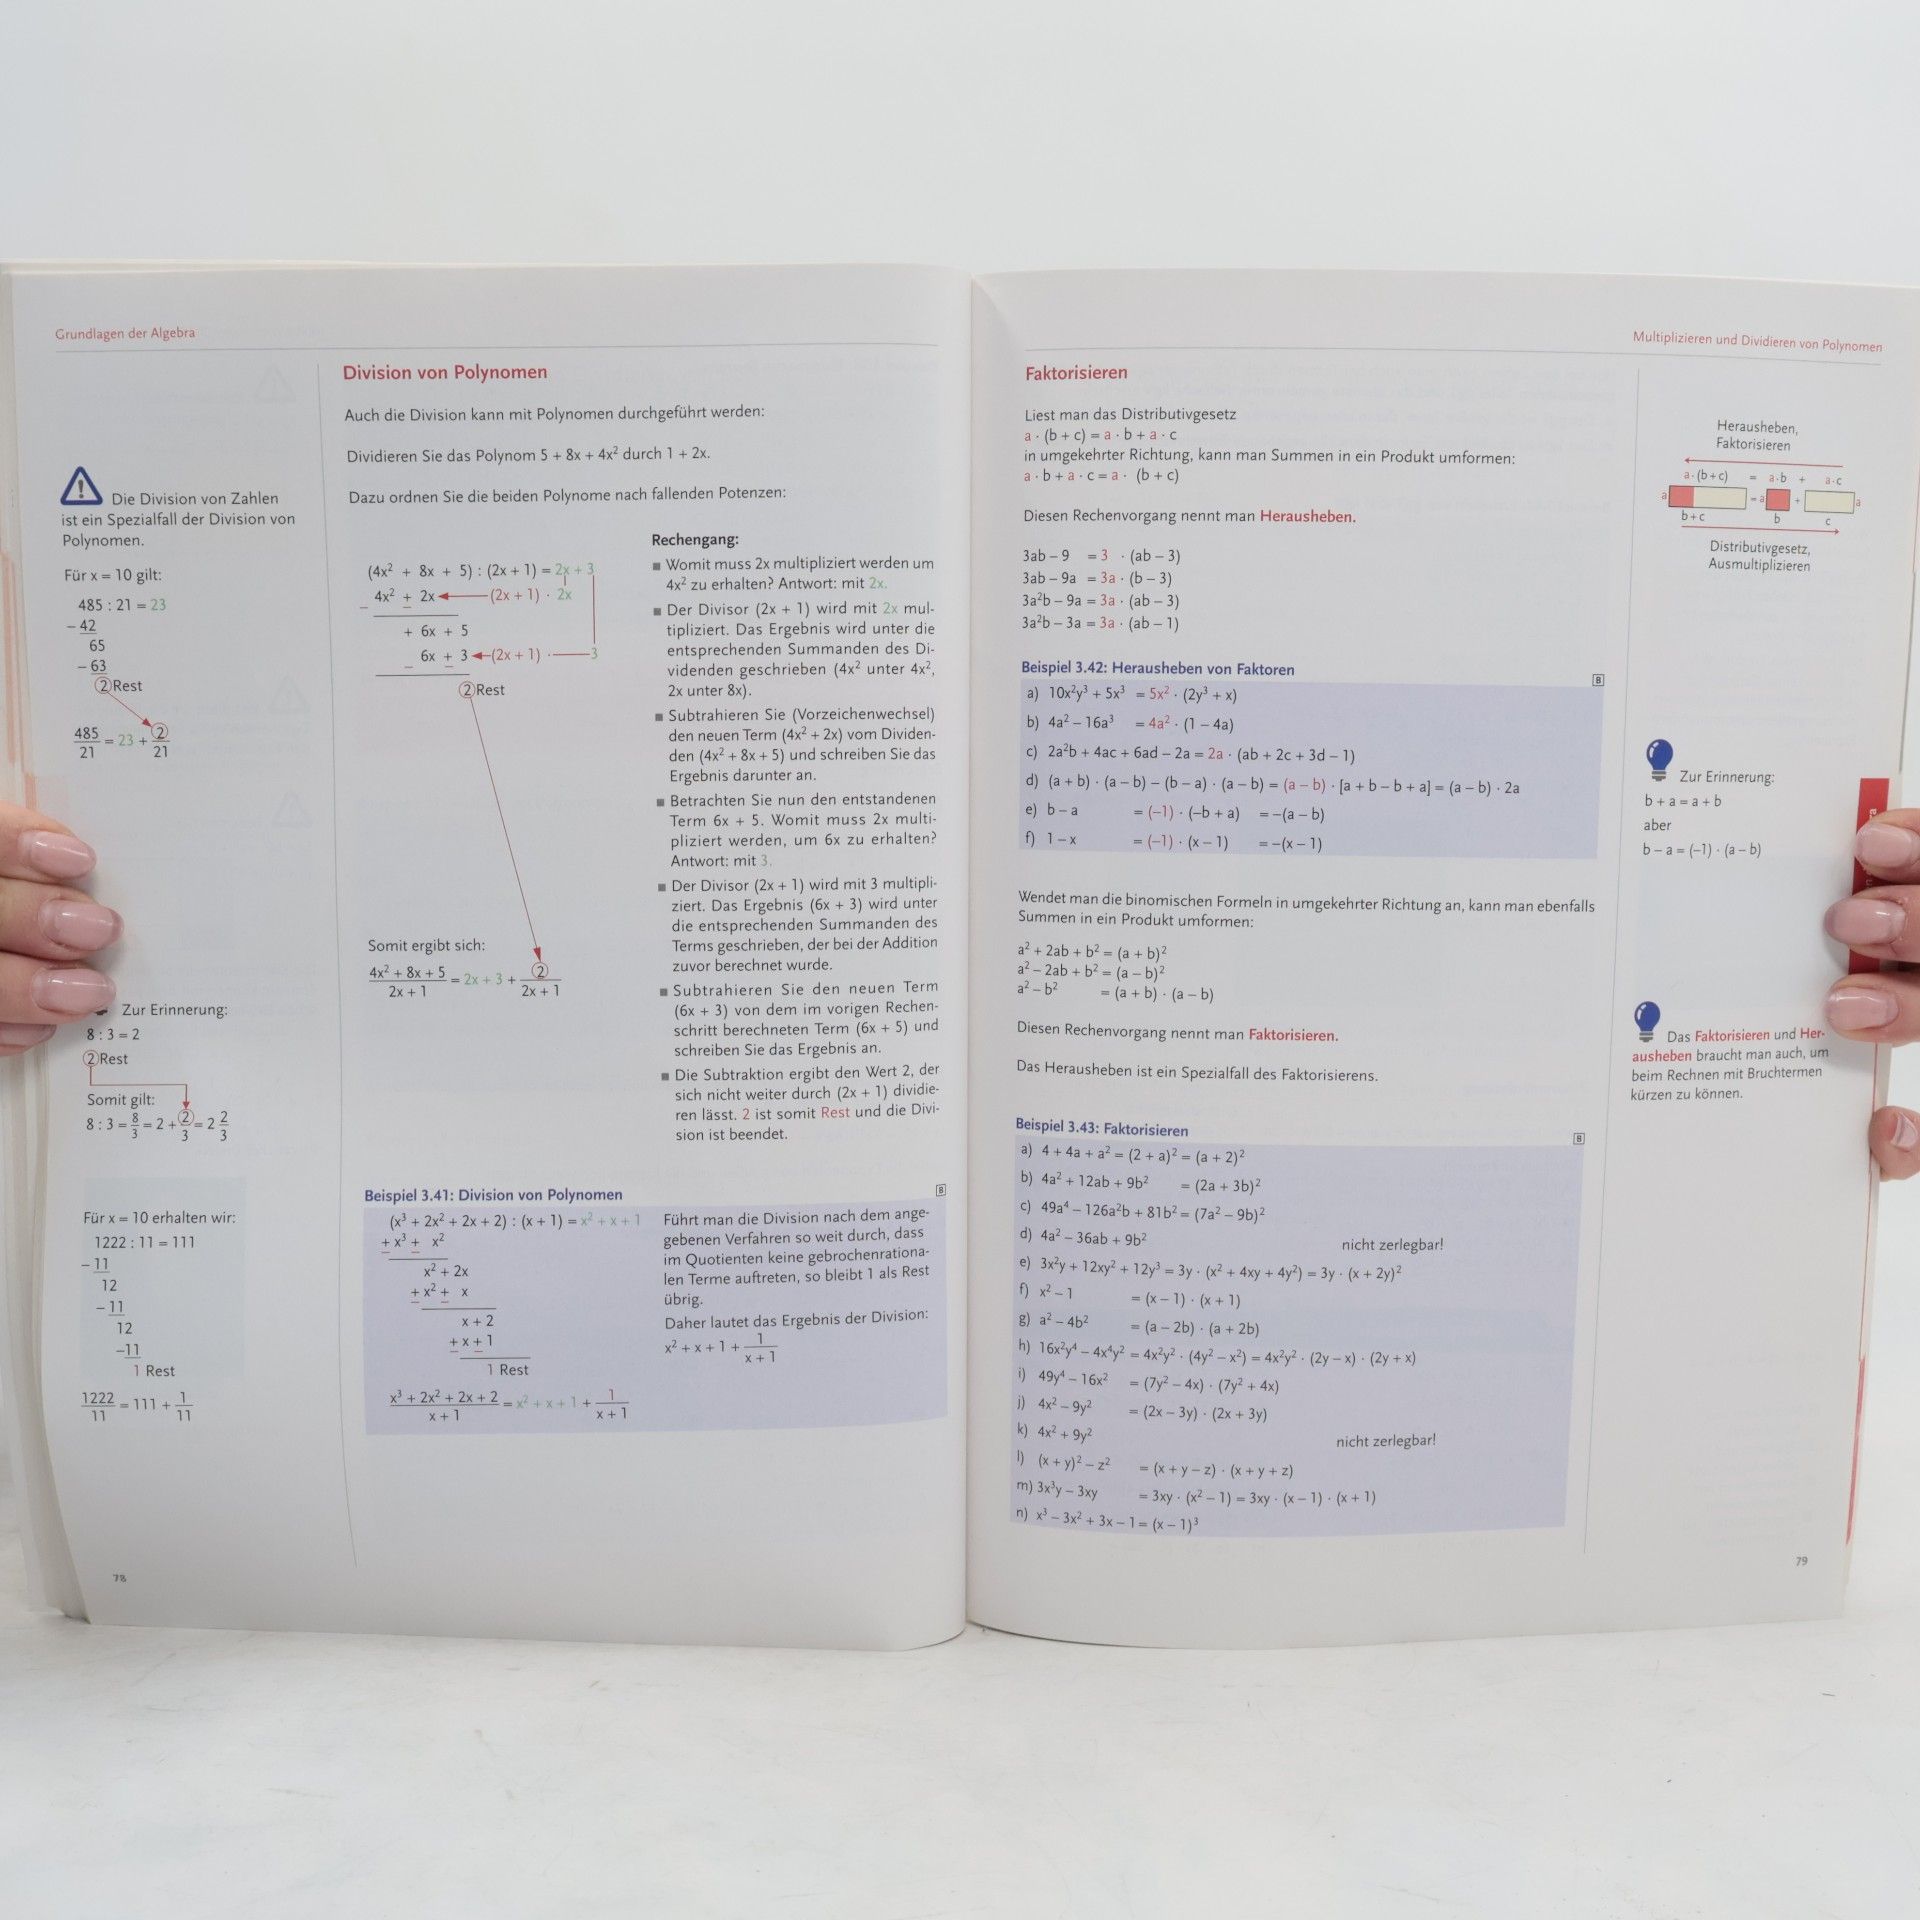 Grundlagen der Algebra
Die Division von Zahlen
ist ein Spezialfall der Division von
Polynomen.
Für x = 10 gilt:
485 : 21 = 23
– 42
65
– 63
2 Rest
485/21 = 23 + 2/21
Zur Erinnerung:
8 : 3 = 2
2 Rest
Somit gilt:
8 : 3 = 8/3 = 2 + 2/3 = 2 2/3
Für x = 10 erhalten wir:
1222 : 11 = 111
– 11
12
– 11
12
–11
1 Rest
1222/11 = 111 + 1/11
78
Division von Polynomen
Auch die Division kann mit Polynomen durchgeführt werden:
Dividieren Sie das Polynom 5 + 8x + 4x² durch 1 + 2x.
Dazu ordnen Sie die beiden Polynome nach fallenden Potenzen:
(4x² + 8x + 5) : (2x + 1) = 2x + 3
4x² + 2x (2x + 1) · 2x
– –
+ 6x + 5
6x + 3 (2x + 1) · 3
– –
2 Rest
Somit ergibt sich:
(4x² + 8x + 5)/(2x + 1) = 2x + 3 + 2/(2x + 1)
Rechengang:
■ Womit muss 2x multipliziert werden um
4x² zu erhalten? Antwort: mit 2x.
■ Der Divisor (2x + 1) wird mit 2x mul-
tipliziert. Das Ergebnis wird unter die
entsprechenden Summanden des Di-
videnden geschrieben (4x² unter 4x²,
2x unter 8x).
■ Subtrahieren Sie (Vorzeichenwechsel)
den neuen Term (4x² + 2x) vom Dividen-
den (4x² + 8x + 5) und schreiben Sie das
Ergebnis darunter an.
■ Betrachten Sie nun den entstandenen
Term 6x + 5. Womit muss 2x multi-
pliziert werden, um 6x zu erhalten?
Antwort: mit 3.
■ Der Divisor (2x + 1) wird mit 3 multipli-
ziert. Das Ergebnis (6x + 3) wird unter
die entsprechenden Summanden des
Terms geschrieben, der bei der Addition
zuvor berechnet wurde.
■ Subtrahieren Sie den neuen Term
(6x + 3) von dem im vorigen Rechen-
schritt berechneten Term (6x + 5) und
schreiben Sie das Ergebnis an.
■ Die Subtraktion ergibt den Wert 2, der
sich nicht weiter durch (2x + 1) dividie-
ren lässt. 2 ist somit Rest und die Divi-
sion ist beendet.
Beispiel 3.41: Division von Polynomen B
(x³ + 2x² + 2x + 2) : (x + 1) = x² + x + 1
+ x³ + x²
– –
x² + 2x
+ x² + x
– –
x + 2
+ x + 1
– –
1 Rest
(x³ + 2x² + 2x + 2)/(x + 1) = x² + x + 1 + 1/(x + 1)
Führt man die Division nach dem ange-
gebenen Verfahren so weit durch, dass
im Quotienten keine gebrochenrationa-
len Terme auftreten, so bleibt 1 als Rest
übrig.
Daher lautet das Ergebnis der Division:
x² + x + 1 + 1/(x + 1)
Multiplizieren und Dividieren von Polynomen
Faktorisieren
Liest man das Distributivgesetz
a · (b + c) = a · b + a · c
in umgekehrter Richtung, kann man Summen in ein Produkt umformen:
a · b + a · c = a · (b + c)
Diesen Rechenvorgang nennt man Herausheben.
3ab – 9 = 3 · (ab – 3)
3ab – 9a = 3a · (b – 3)
3a²b – 9a = 3a · (ab – 3)
3a²b – 3a = 3a · (ab – 1)
Beispiel 3.42: Herausheben von Faktoren B
a) 10x²y³ + 5x³ = 5x² · (2y³ + x)
b) 4a² – 16a³ = 4a² · (1 – 4a)
c) 2a²b + 4ac + 6ad – 2a = 2a · (ab + 2c + 3d – 1)
d) (a + b) · (a – b) – (b – a) · (a – b) = (a – b) · [a + b – b + a] = (a – b) · 2a
e) b – a = (–1) · (–b + a) = –(a – b)
f) 1 – x = (–1) · (x – 1) = –(x – 1)
Wendet man die binomischen Formeln in umgekehrter Richtung an, kann man ebenfalls
Summen in ein Produkt umformen:
a² + 2ab + b² = (a + b)²
a² – 2ab + b² = (a – b)²
a² – b² = (a + b) · (a – b)
Diesen Rechenvorgang nennt man Faktorisieren.
Das Herausheben ist ein Spezialfall des Faktorisierens.
Beispiel 3.43: Faktorisieren B
a) 4 + 4a + a² = (2 + a)² = (a + 2)²
b) 4a² + 12ab + 9b² = (2a + 3b)²
c) 49a⁴ – 126a²b + 81b² = (7a² – 9b)²
d) 4a² – 36ab + 9b² nicht zerlegbar!
e) 3x²y + 12xy² + 12y³ = 3y · (x² + 4xy + 4y²) = 3y · (x + 2y)²
f) x² – 1 = (x – 1) · (x + 1)
g) a² – 4b² = (a – 2b) · (a + 2b)
h) 16x²y⁴ – 4x⁴y² = 4x²y² · (4y² – x²) = 4x²y² · (2y – x) · (2y + x)
i) 49y⁴ – 16x² = (7y² – 4x) · (7y² + 4x)
j) 4x² – 9y² = (2x – 3y) · (2x + 3y)
k) 4x² + 9y² nicht zerlegbar!
l) (x + y)² – z² = (x + y – z) · (x + y + z)
m) 3x³y – 3xy = 3xy · (x² – 1) = 3xy · (x – 1) · (x + 1)
n) x³ – 3x² + 3x – 1 = (x – 1)³
Herausheben,
Faktorisieren
a · (b + c) = a · b + a · c
a = a + a
b + c b c
Distributivgesetz,
Ausmultiplizieren
Zur Erinnerung:
b + a = a + b
aber
b – a = (–1) · (a – b)
Das Faktorisieren und Her-
ausheben braucht man auch, um
beim Rechnen mit Bruchtermen
kürzen zu können.
79